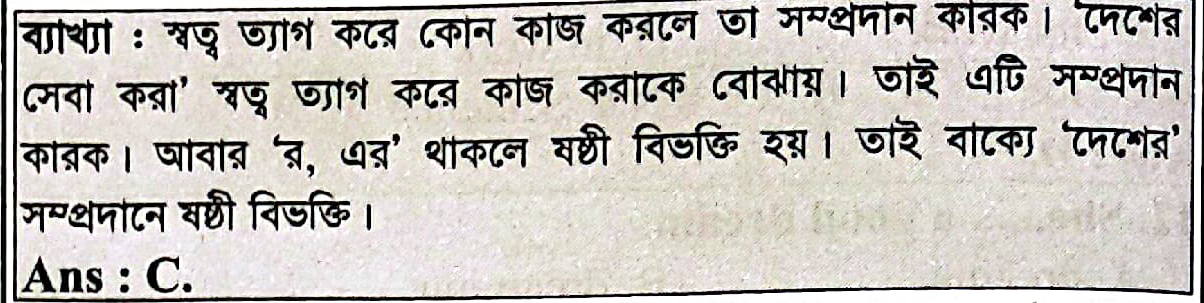 ব্যাখ্যা : স্বত্ব ত্যাগ করে কোন কাজ করলে তা সম্প্রদান কারক। 'দেশের
সেবা করা' স্বত্ব ত্যাগ করে কাজ করাকে বোঝায়। তাই এটি সম্প্রদান
কারক। আবার 'র, এর' থাকলে ষষ্ঠী বিভক্তি হয়। তাই বাক্যে 'দেশের'
সম্প্রদানে ষষ্ঠী বিভক্তি।
Ans : C.